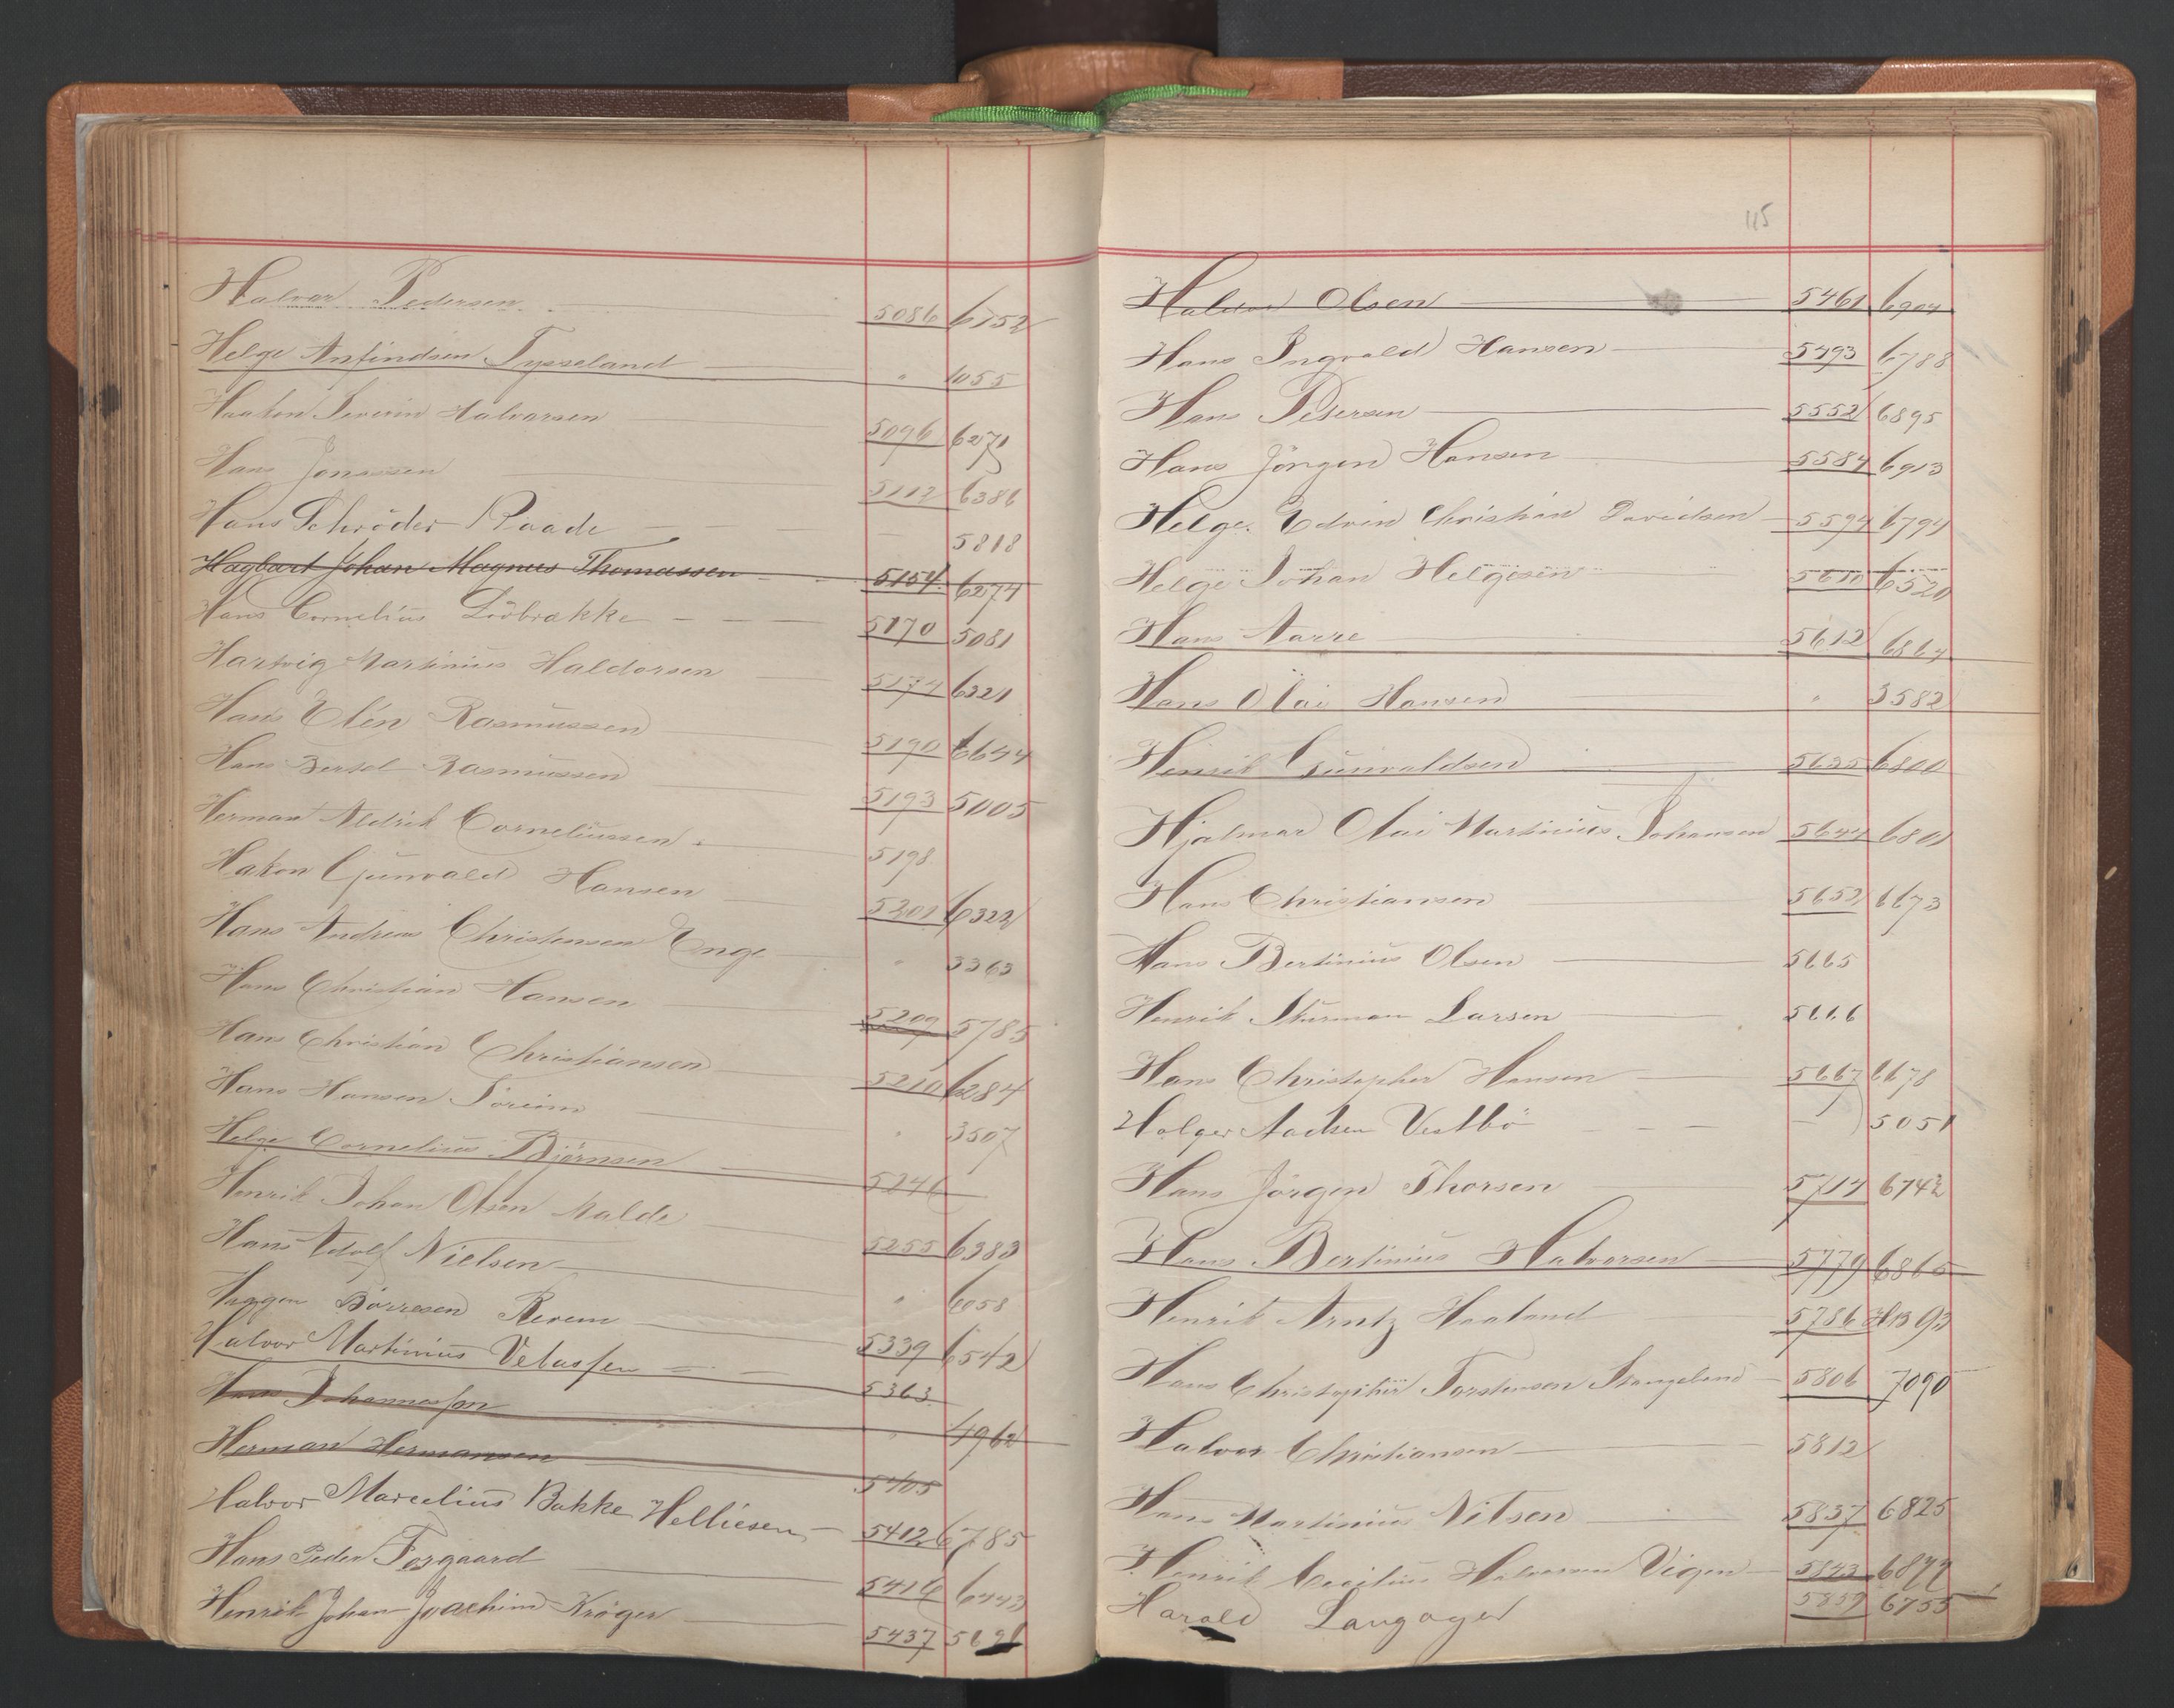 Halvor Pedersen 5086 6752
Helge Anfindsen Tysseland " 1055
Haakon Severin Halvorsen 5096 6271
Hans Jonassen 5112 6386
Hans Schröder Raade — 5818
Hagbart Johan Magnus Thomassen 5154 6274
Hans Cornelius Lövbrække 5170 5081
Hartvig Martinius Haldorsen 5174 6321
Hans Elén Rasmussen 5190 6644
Hans Bertel Rasmussen 5193 5005
Herman Aldrik Corneliussen 5198
Hakon Gunvald Hansen 5201 6322
Hans Andreas Christensen Enge " 3363
Hans Christian Hansen 5209 5785
Hans Christian Christiansen 5210 6284
Hans Hansen Soreim " 3507
Helge Cornelius Bjørnsen 5246
Henrik Johan Olsen Malde 5255 6383
Hans Adolf Nielsen " 6058
Haggen Börresen Revem 5339 6542
Halvor Martinius Vetassen 5363
Hans Johannessen " 4962
Herman Hermansen 5405
Halvor Marcelius Bakke Helliesen 5412 6785
Hans Peder Torgaard 5416 6443
Henrik Johan Joachim Kröger 5437
115
Halvor Olsen 5461 6904
Hans Ingvald Hansen 5493 6788
Hans Petersen 5552 6895
Hans Jörgen Hansen 5584 6913
Helge Edvin Christian Davidsen 5594 6794
Helge Johan Helgesen 5610 6520
Hans Aarre 5612 6864
Hans Olai Hansen " 3582
Henrik Gunvaldsen 5635 6800
Hjalmar Olai Martinius Johansen 5644 6801
Hans Christiansen 5652 6673
Hans Bertinius Olsen 5665
Henrik Sturman Larsen 5666
Hans Christopher Hansen 5667 6678
Holger Aadsen Vestbö — 5051
Hans Jörgen Thorsen 5714 6742
Hans Bertinius Halvorsen 5779 6865
Henrik Arntz Haaland 5786 HB 93
Hans Christopher Torstensen Stangeland 5806 7090
Halvor Christiansen 5812
Hans Martinius Nilsen 5837 6825
Henrik Cecilius Halvorsen Vigen 5843 6877
Harald Langager 5859 6755